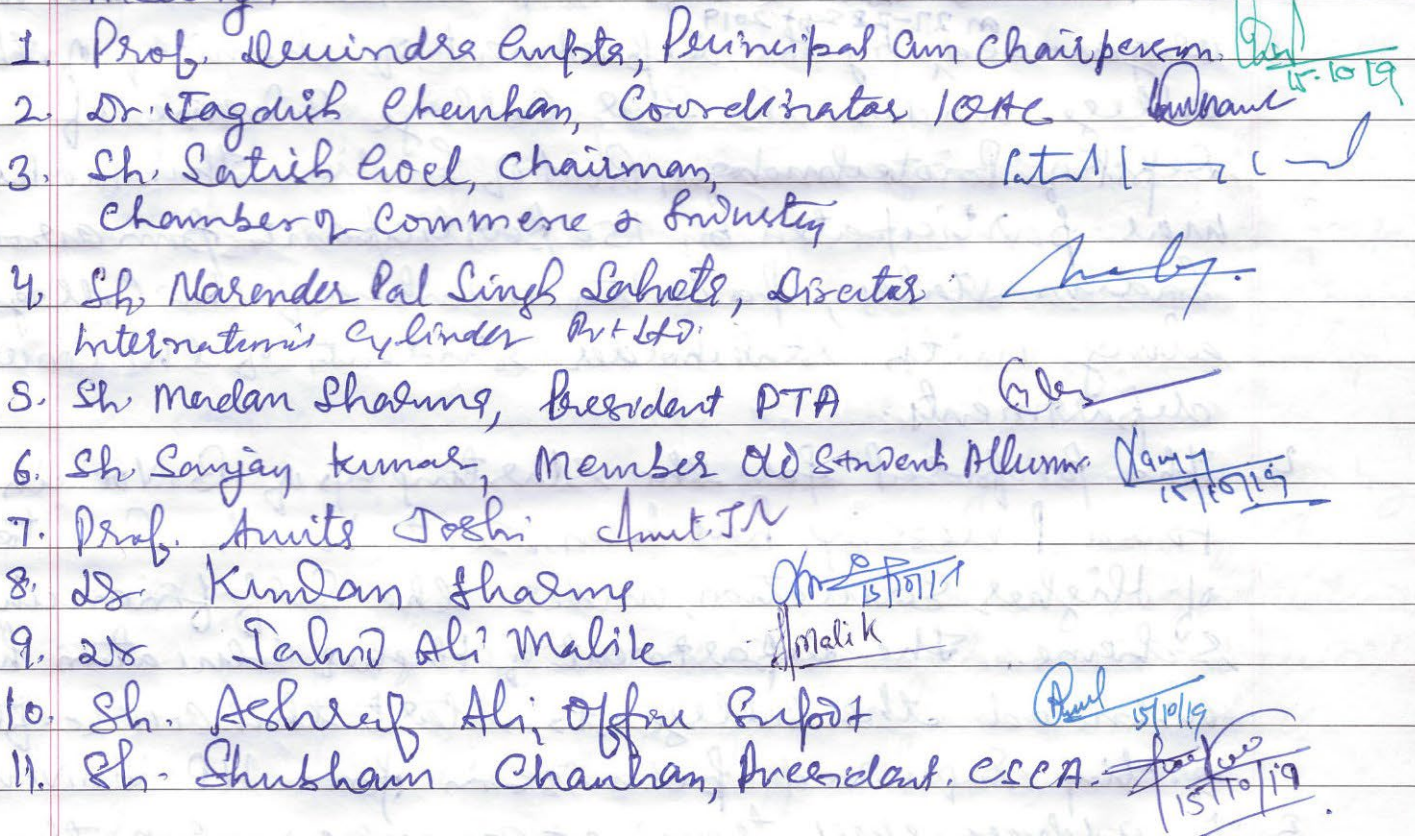 Meeting:
1. Prof. Devindra Gupta, Principal cum Chairperson. 15.10.19
2. Dr. Jagdish Chauhan, Coordinator IQAC
3. Sh. Satish Goel, Chairman,
Chamber of Commerce & Industry
4. Sh. Narender Pal Singh Sahota, Director
Internationis Cylinder Pvt Ltd.
5. Sh. Madan Sharma, President PTA
6. Sh. Sanjay Kumar, Member Old Student Allumni 15/10/19
7. Prof. Amita Joshi Amit.JN
8. Dr. Kundan Sharma 15/10/19
9. Dr Jahid Ali Malik Malik
10. Sh. Ashraf Ali, Office Supdt 15/10/19
11. Sh. Shubham Chauhan, President. CSCA. 15/10/19